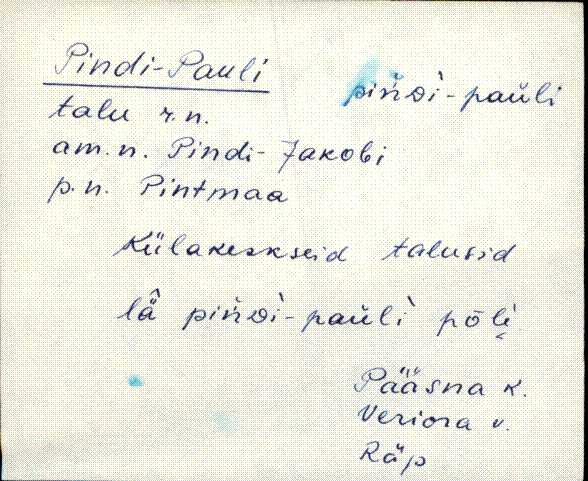 Pindi-Pauli pińDì-paŭli
talu r.n.
am.n. Pindi-Jakobi
p.n. Pintmaa
Külakeskseid talusid
lä̂ pińDì-paŭlì põlè
Pääsna k.
Veriora v.
Räp